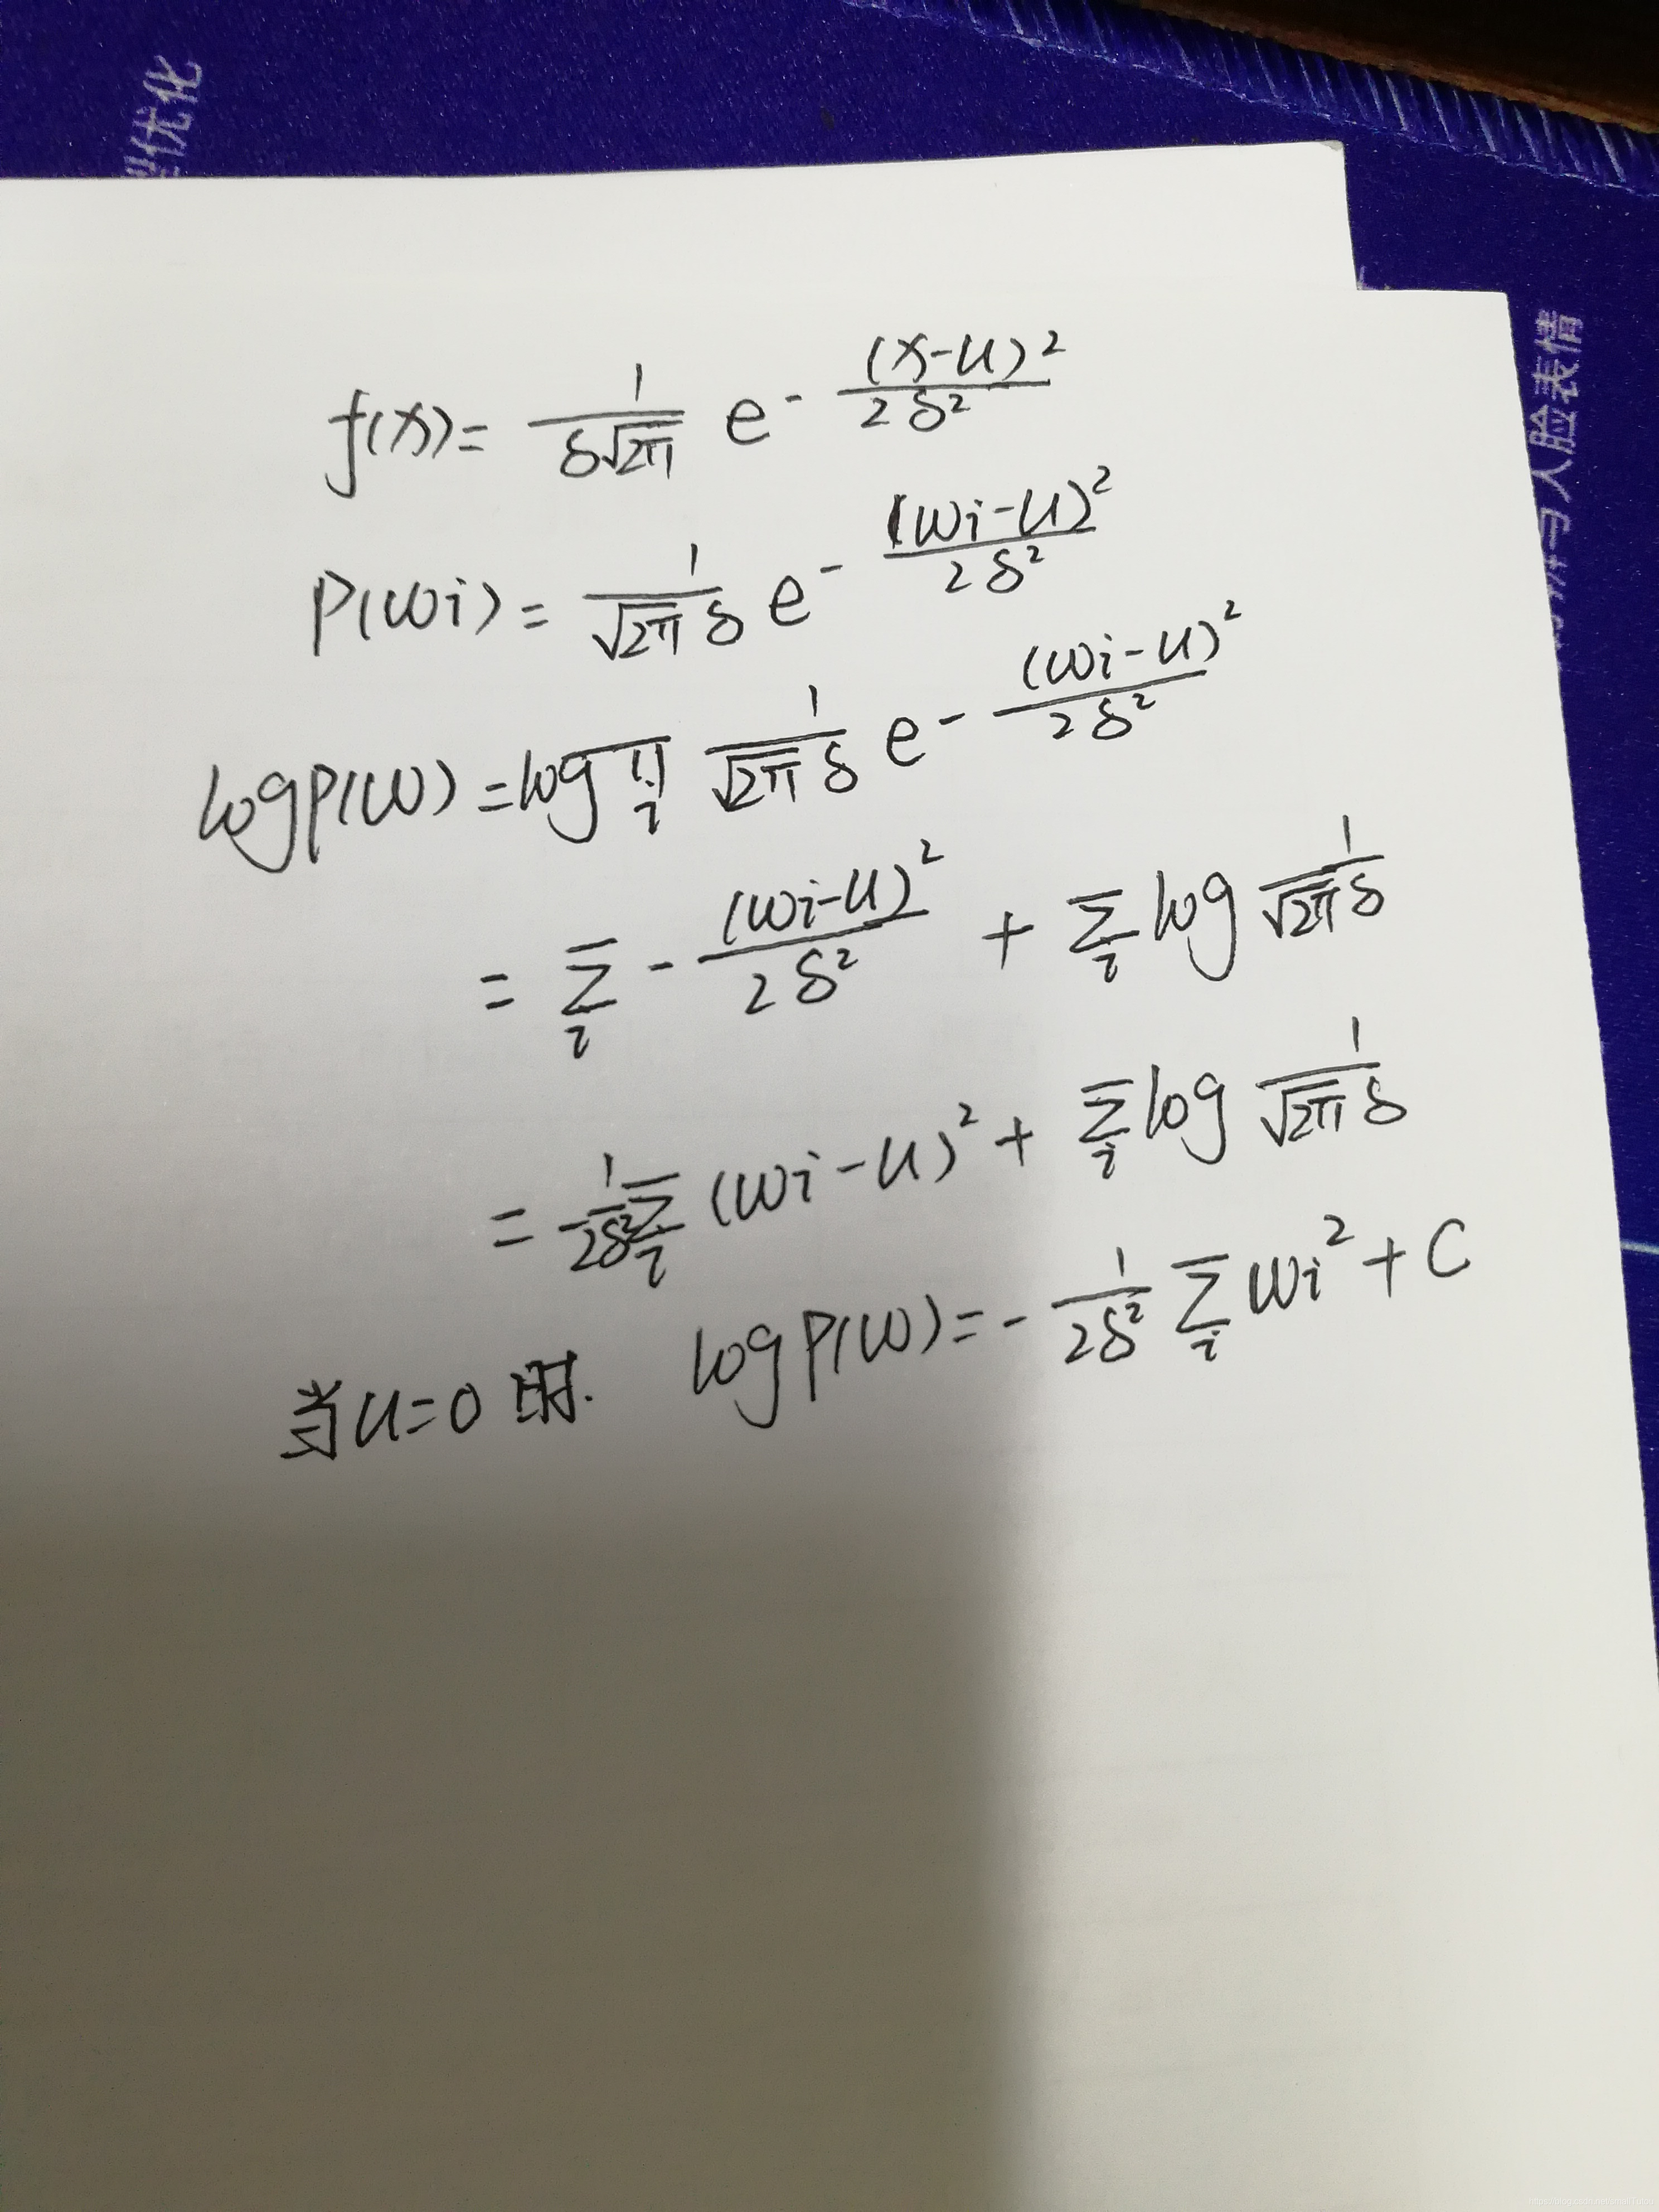 优化
人脸表情
f(x) = \frac{1}{δ\sqrt{2π}} e^{-\frac{(x-u)^2}{2δ^2}}
P(wi) = \frac{1}{\sqrt{2π}δ} e^{-\frac{(wi-u)^2}{2δ^2}}
log P(w) = log \prod_i \frac{1}{\sqrt{2π}δ} e^{-\frac{(wi-u)^2}{2δ^2}}
= \sum_i -\frac{(wi-u)^2}{2δ^2} + \sum_i log \frac{1}{\sqrt{2π}δ}
= \frac{1}{2δ^2} \sum_i (wi-u)^2 + \sum_i log \frac{1}{\sqrt{2π}δ}
当u=0时. log P(w) = -\frac{1}{2δ^2} \sum_i wi^2 + C